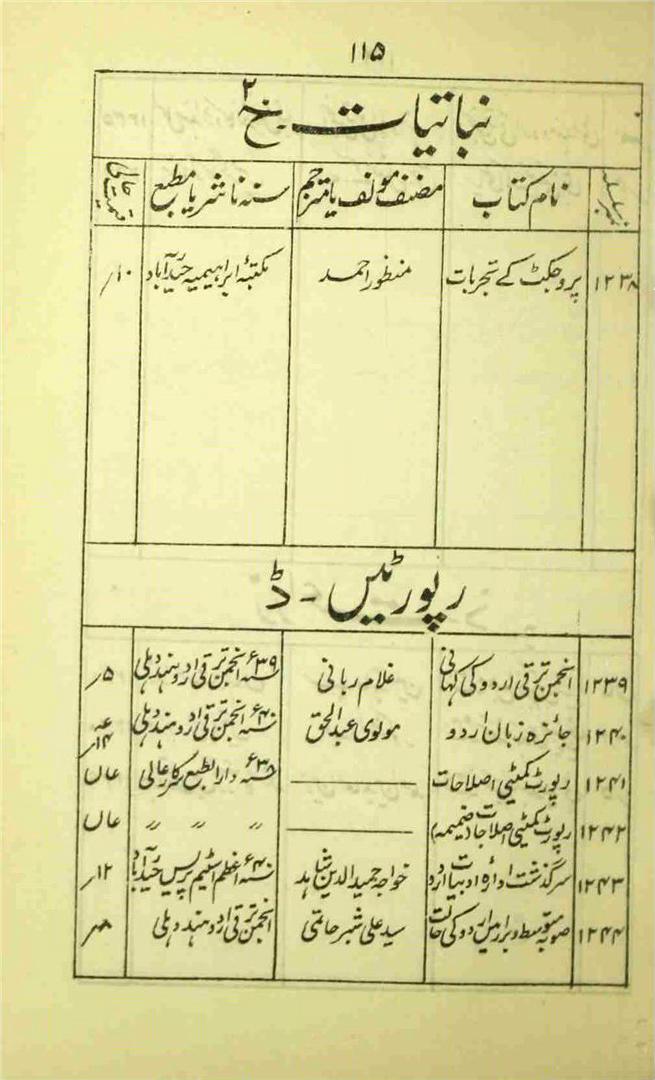 ۱۱۵
نباتیات۔ خ ۲
نمبر سلسلہ نام کتاب مصنف مولف یا مترجم سنہ ناشر یا مطبع قیمت حالی
۱۲۳۸ پروجکٹ کے تجربات منظور احمد مکتبۂ ابراہیمیہ حیدرآباد ۱۰؍
رپورٹیں ۔ ڈ
۱۲۳۹ انجمن ترقی اردو کی کہانی غلام ربانی سنہ ۳۹ء انجمن ترقی اردو ہند دہلی ۵؍
۱۲۴۰ جائزہ زبان اردو مولوی عبدالحق سنہ ۴۰ء انجمن ترقی اردو ہند دہلی ۱۴؍
۱۲۴۱ رپورٹ کمیٹی اصلاحات ——— سنہ ۳۸ء دارالطبع سرکار عالی
۱۲۴۲ رپورٹ کمیٹی اصلاحات (ضمیمہ) ——— 〃 〃 〃
۱۲۴۳ سرگذشت ادارۂ ادبیات اردو خواجہ حمید الدین شاہد سنہ ۴۰ء اعظم اسٹیم پریس حیدرآباد ۱۲؍
۱۲۴۴ صوبہ متوسط و برار میں اردو کی حالت سید علی شبر حاتمی انجمن ترقی اردو ہند دہلی ۸؍